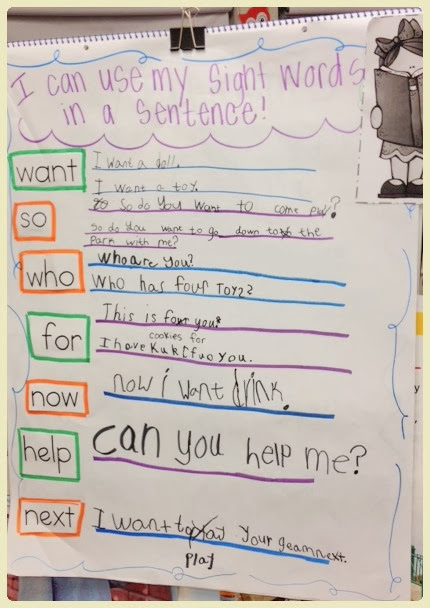 I can use my Sight Words
in a Sentence!
want
I want a doll.
I want a toy.
so
So do you want to come play?
So do you want to go down to the
Park with me?
who
Who are you?
Who has four Toyz?
for
This is for you.
cookies for
I have Kukifuo you.
now
now i want drink.
help
can you help me?
next
I want to play your geam next.
play